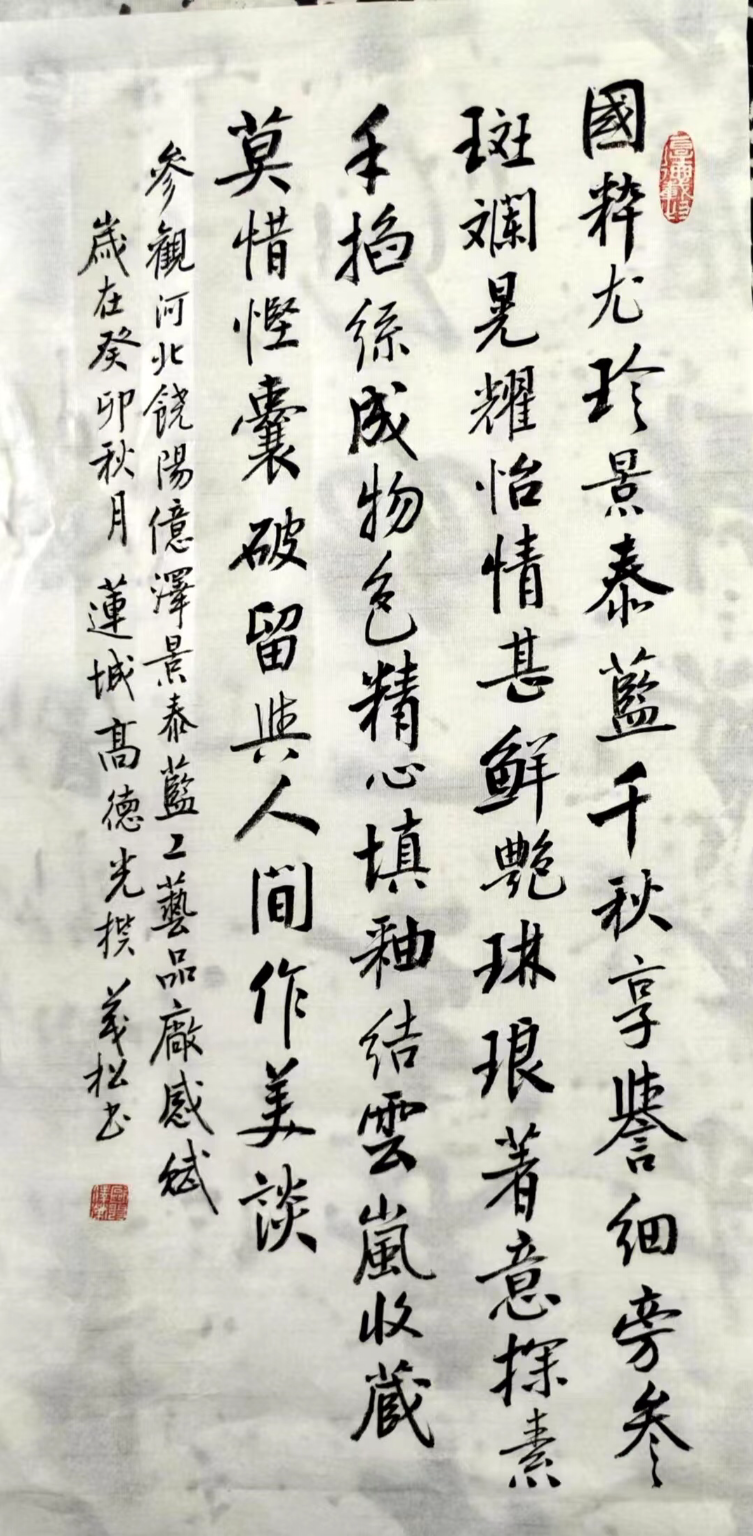 國粹尤珍景泰藍千秋享譽細旁參
斑斕晃耀怡情甚鲜艷琳琅著意探素
手掐絲成物色精心填釉结雲嵐收藏
莫惜慳囊破留與人間作美談
參觀河北饶陽億澤景泰藍工藝品廠感赋
歲在癸卯秋月 蓮城高德光撰 義松书